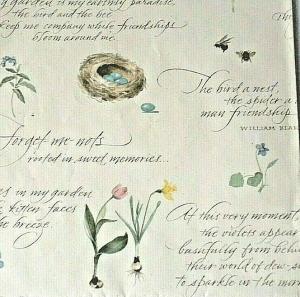 garden is my earthly paradise,
the bird and the bee
keep me company while friendships
bloom around me.
The
The bird a nest,
the spider a
man friendship.
WILLIAM BLA
forget-me-nots
rooted in sweet memories...
s in my garden
kitten faces
the breeze.
At this very moment
the violets appear
bashfully from behi
their world of dew-s
to sparkle in the mor